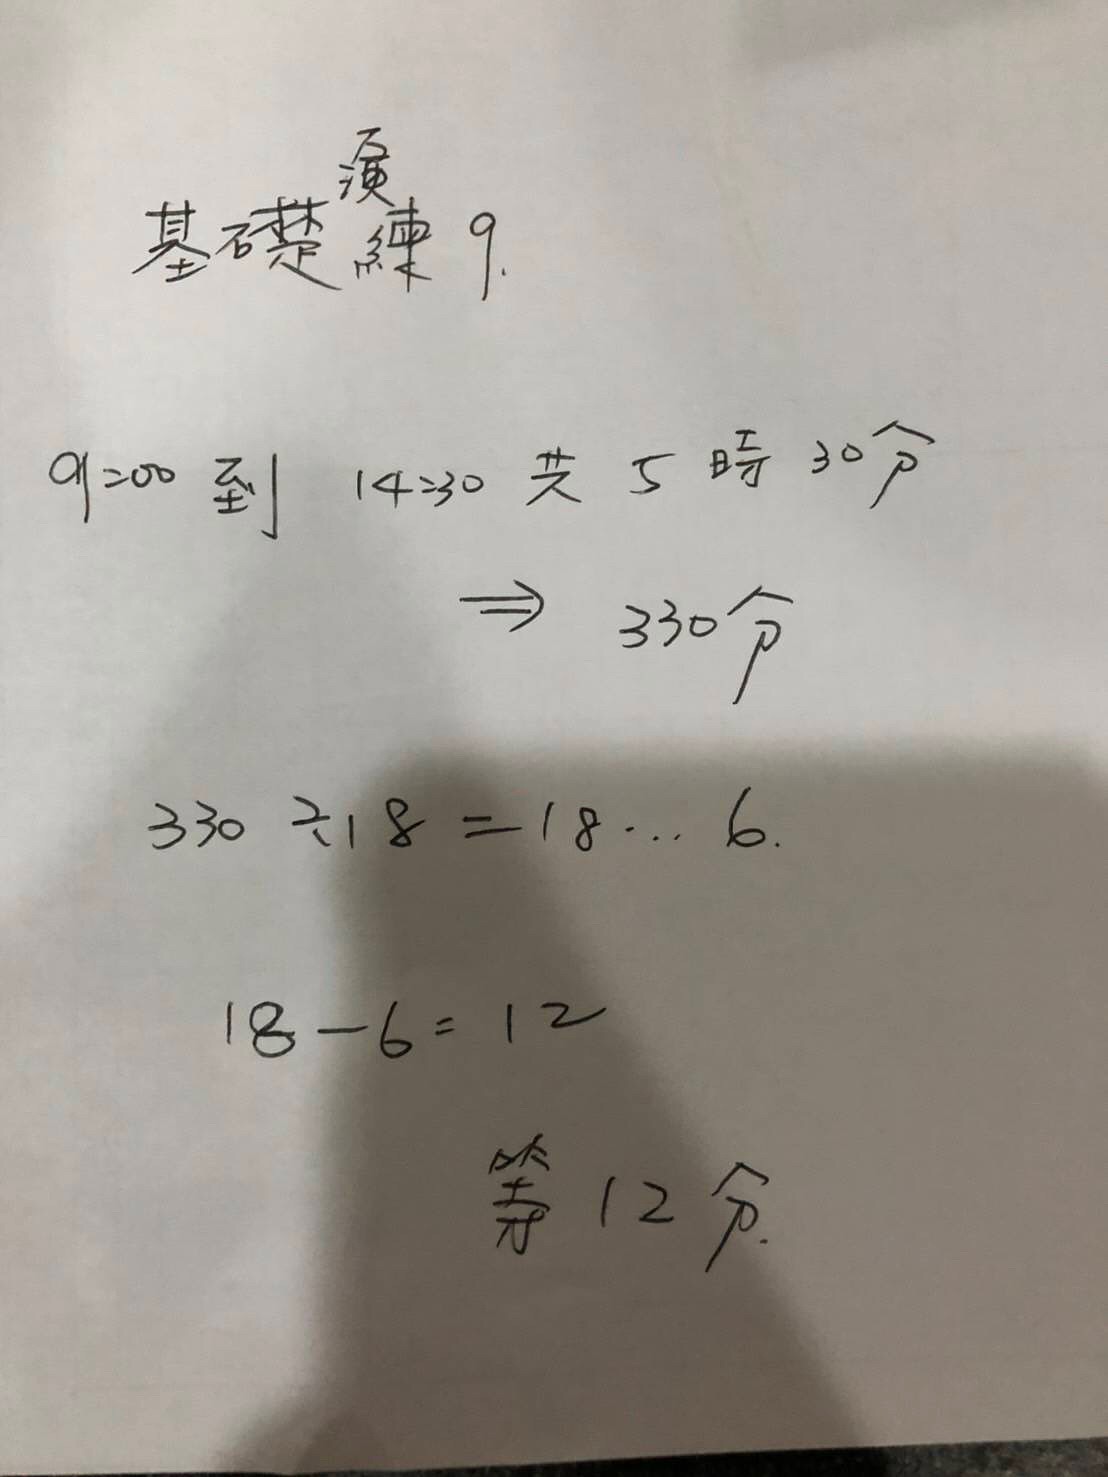 基礎演練9.
9:00 到 14:30 共 5 時 30分
⇒ 330分
330 ÷ 18 = 18 ... 6.
18 - 6 = 12
等 12 分.